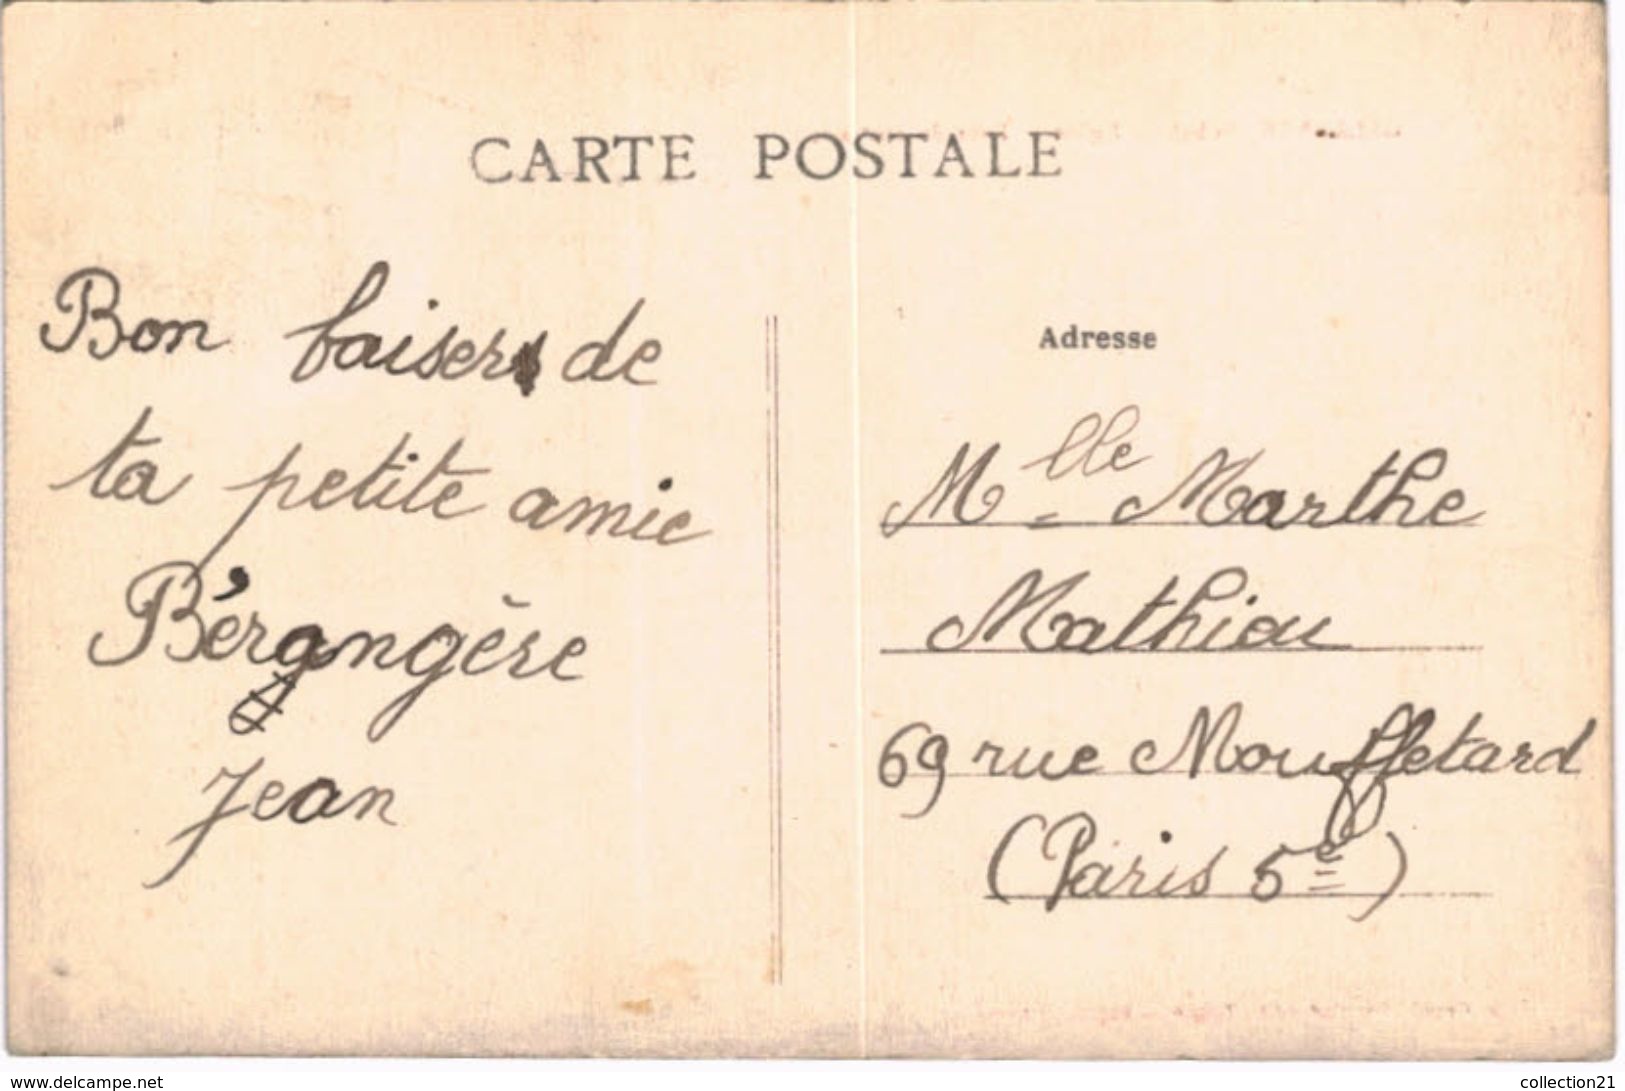 CARTE POSTALE
Bon baisers de
ta petite amie
Bérangère
Jean
Adresse
Mlle Marthe
Mathieu
69 rue Mouffetard
(Paris 5e)
www.delcampe.net
collection21